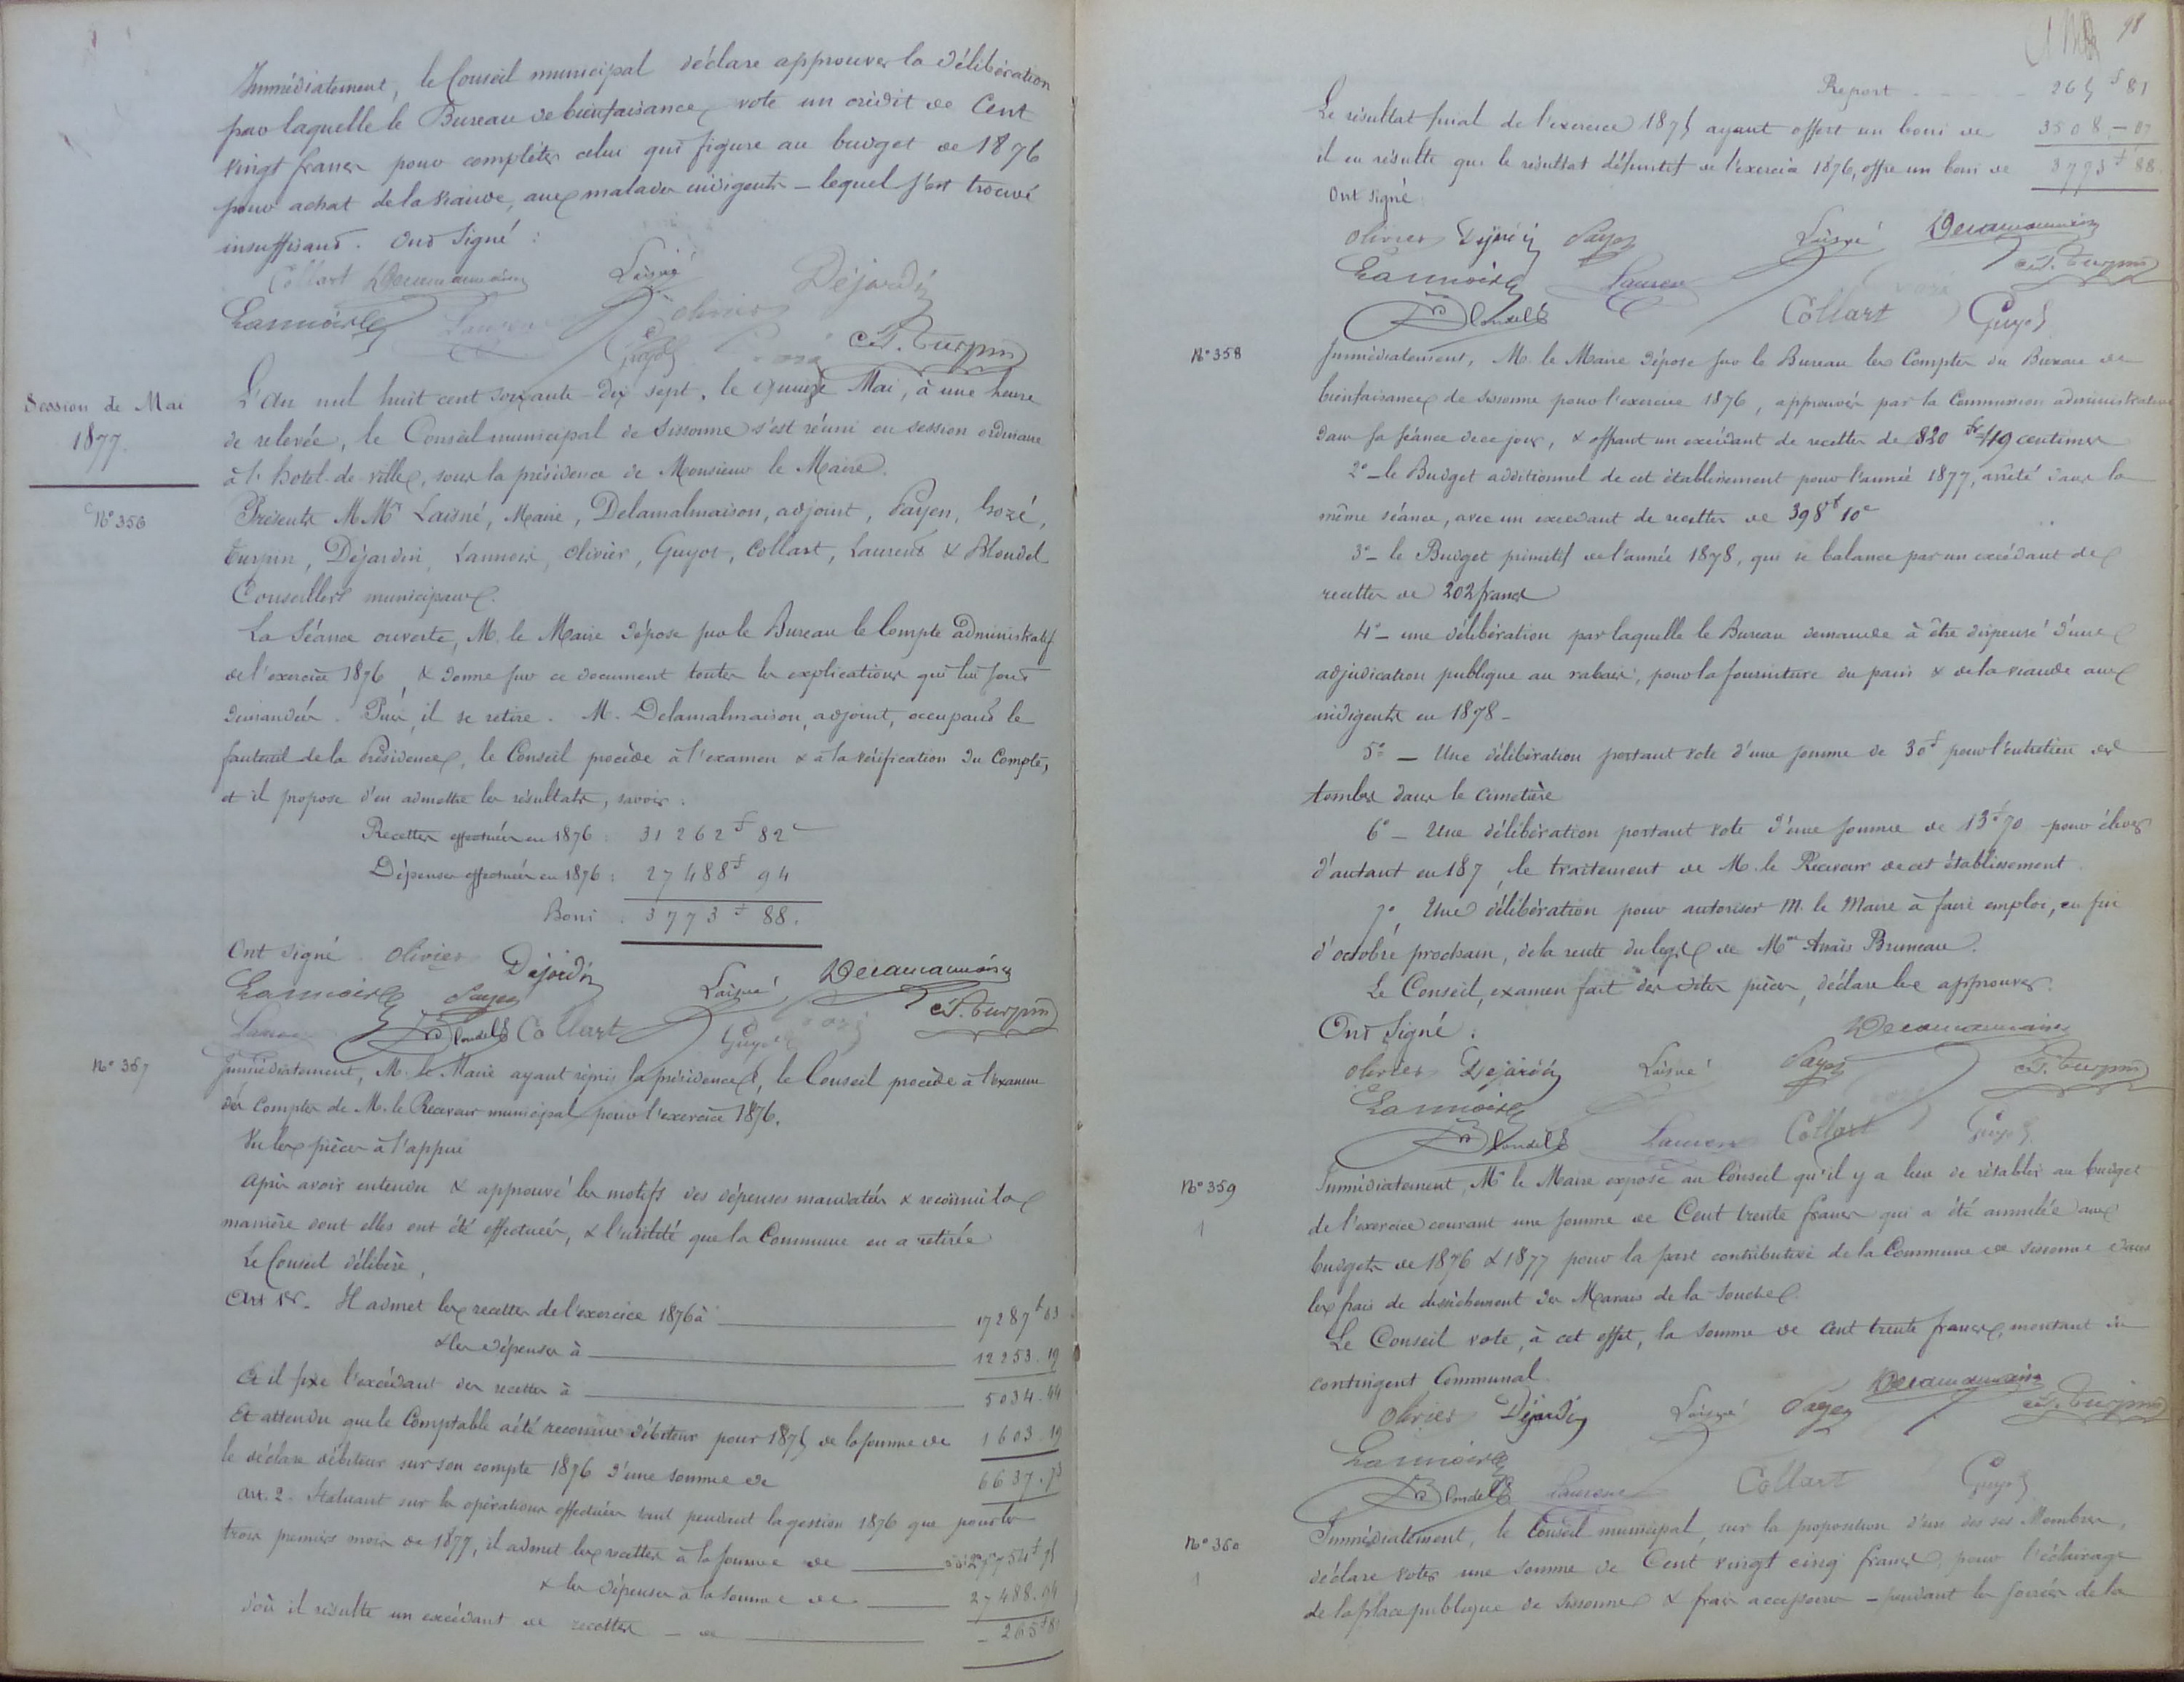 Immédiatement, le Conseil municipal déclare approuver la délibération
par laquelle le Bureau de bienfaisance vote un crédit de Cent
vingt francs pour compléter celui qui figure au budget de 1876
pour achat de la viande, aux malades indigents - lequel s'est trouvé
insuffisant. Ont Signé :
Collart Delamalmaison Laisné Déjardin
Lannois Laurent Olivier
Guyot Hozé T. Turpin
Session de Mai
1877.
N° 356
L'An mil huit cent soixante-dix sept, le quinze Mai, à une heure
de relevée, le Conseil municipal de Sissonne s'est réuni en session ordinaire
à l'hotel-de-ville, sous la présidence de Monsieur le Maire.
Présents MMrs Laisné, Maire, Delamalmaison, adjoint, Payen, hozé,
Turpin, Déjardin, Lannois, Olivier, Guyot, Collart, Laurent & Blondel
Conseillers municipaux.
La Séance ouverte, M. le Maire dépose sur le Bureau le Compte administratif
de l'exercice 1876, & donne sur ce document toutes les explications qui lui sont
demandées. Puis, il se retire. M. Delamalmaison, adjoint, occupant le
fauteuil de la Présidence, le Conseil procède à l'examen & à la vérification du Compte,
et il propose d'en admettre les résultats, savoir :
Recettes effectuées en 1876 : 31 262 f 82 c
Dépenses effectuées en 1876 : 27 488 f 94
Boni : 3 773 f 88.
Ont signé Olivier Déjardin Delamalmaison
Lannois Payen Laisné T. Turpin
Laurent Blondel Collart Guyot Hozé
N° 357
Immédiatement, M. le Maire ayant repris la présidence, le Conseil procède à l'examen
des Comptes de M. le Receveur municipal pour l'exercice 1876.
Vu les pièces à l'appui
Après avoir entendu & approuvé les motifs des dépenses mandatées & reconnu la
manière dont elles ont été effectuées, & l'utilité que la Commune en a retirée
Le Conseil délibère,
Art. 1er. Il admet les recettes de l'exercice 1876 à 17287 f 63
& les dépenses à 12253.19
Et il fixe l'excédant des recettes à 5034.44
Et attendu que le Comptable a été reconnu débiteur pour 1875 de la somme de 1603.19
le déclare débiteur sur son compte 1876 d'une somme de 6637.73
Art. 2. Statuant sur les opérations effectuées tant pendant la gestion 1876 que pour les
trois premiers mois de 1877, il admet les recettes à la somme de 27754 f 75
& les dépenses à la somme de 27488.94
d'où il résulte un excédant de recettes - de 265 f 81
98
Report 265 f 81
Le résultat final de l'exercice 1875 ayant offert un boni de 3508.-07
il en résulte que le résultat définitif de l'exercice 1876, offre un boni de 3773 f 88.
Ont signé
Olivier Déjardin Payen Laisné Delamalmaison
Lannois Laurent T. Turpin
Blondel Collart Guyot
N° 358
Immédiatement, M. le Maire dépose sur le Bureau les Comptes du Bureau de
bienfaisance de Sissonne pour l'exercice 1876, approuvés par la Commission administrative
dans sa séance de ce jour, & offrant un excédant de recettes de 820 fr 49 centimes
2° - le Budget additionnel de cet établissement pour l'année 1877, arrêté dans la
même séance, avec un excédant de recettes de 398 f 10 c
3° - le Budget primitif de l'année 1878, qui se balance par un excédant de
recettes de 202 francs
4° - une délibération par laquelle le Bureau demande à être dispensé d'une
adjudication publique au rabais, pour la fourniture du pain & de la viande aux
indigents en 1878 -
5° - Une délibération portant vote d'une somme de 30 f pour l'entretien des
tombes dans le cimetière
6° - Une délibération portant vote d'une somme de 13 f 70 pour élever
d'autant en 187 , le traitement de M. le Receveur de cet établissement.
7° Une délibération pour autoriser M. le Maire à faire emploi, en fin
d'octobre prochain, de la rente du legs de Mme Anaïs Bruneau.
Le Conseil, examen fait des dites pièces, déclare les approuver.
Ont Signé :
Delamalmaison
Olivier Déjardin Laisné Payen T. Turpin
Lannois
Blondel Laurent Collart Guyot
N° 359
1
Immédiatement, Mr le Maire expose au Conseil qu'il y a lieu de rétablir au budget
de l'exercice courant une somme de Cent trente francs qui a été annulée aux
budgets de 1876 & 1877 pour la part contributive de la Commune de Sissonne dans
les frais de dessèchement des Marais de la Souche.
Le Conseil vote, à cet effet, la somme de cent trente francs, montant du
contingent Communal.
Olivier Déjardin Laisné Payen Delamalmaison T. Turpin
Lannois
Blondel Laurent Collart Guyot
N° 360
1
Immédiatement, le Conseil municipal, sur la proposition d'un des ses Membres,
déclare voter une somme de Cent vingt cinq francs, pour l'éclairage
de la place publique de Sissonne & frais accessoires - pendant les soirées de la